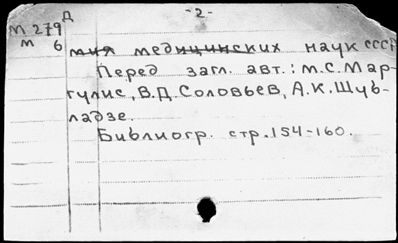 Д
-2-
М 279
м 6
мия медицинских наук СССР
Перед загл. авт.: М.С.Мар-
гулис, В.Д.Соловьев, А.К.Шуб-
ладзе.
Библиогр. стр.154-160.